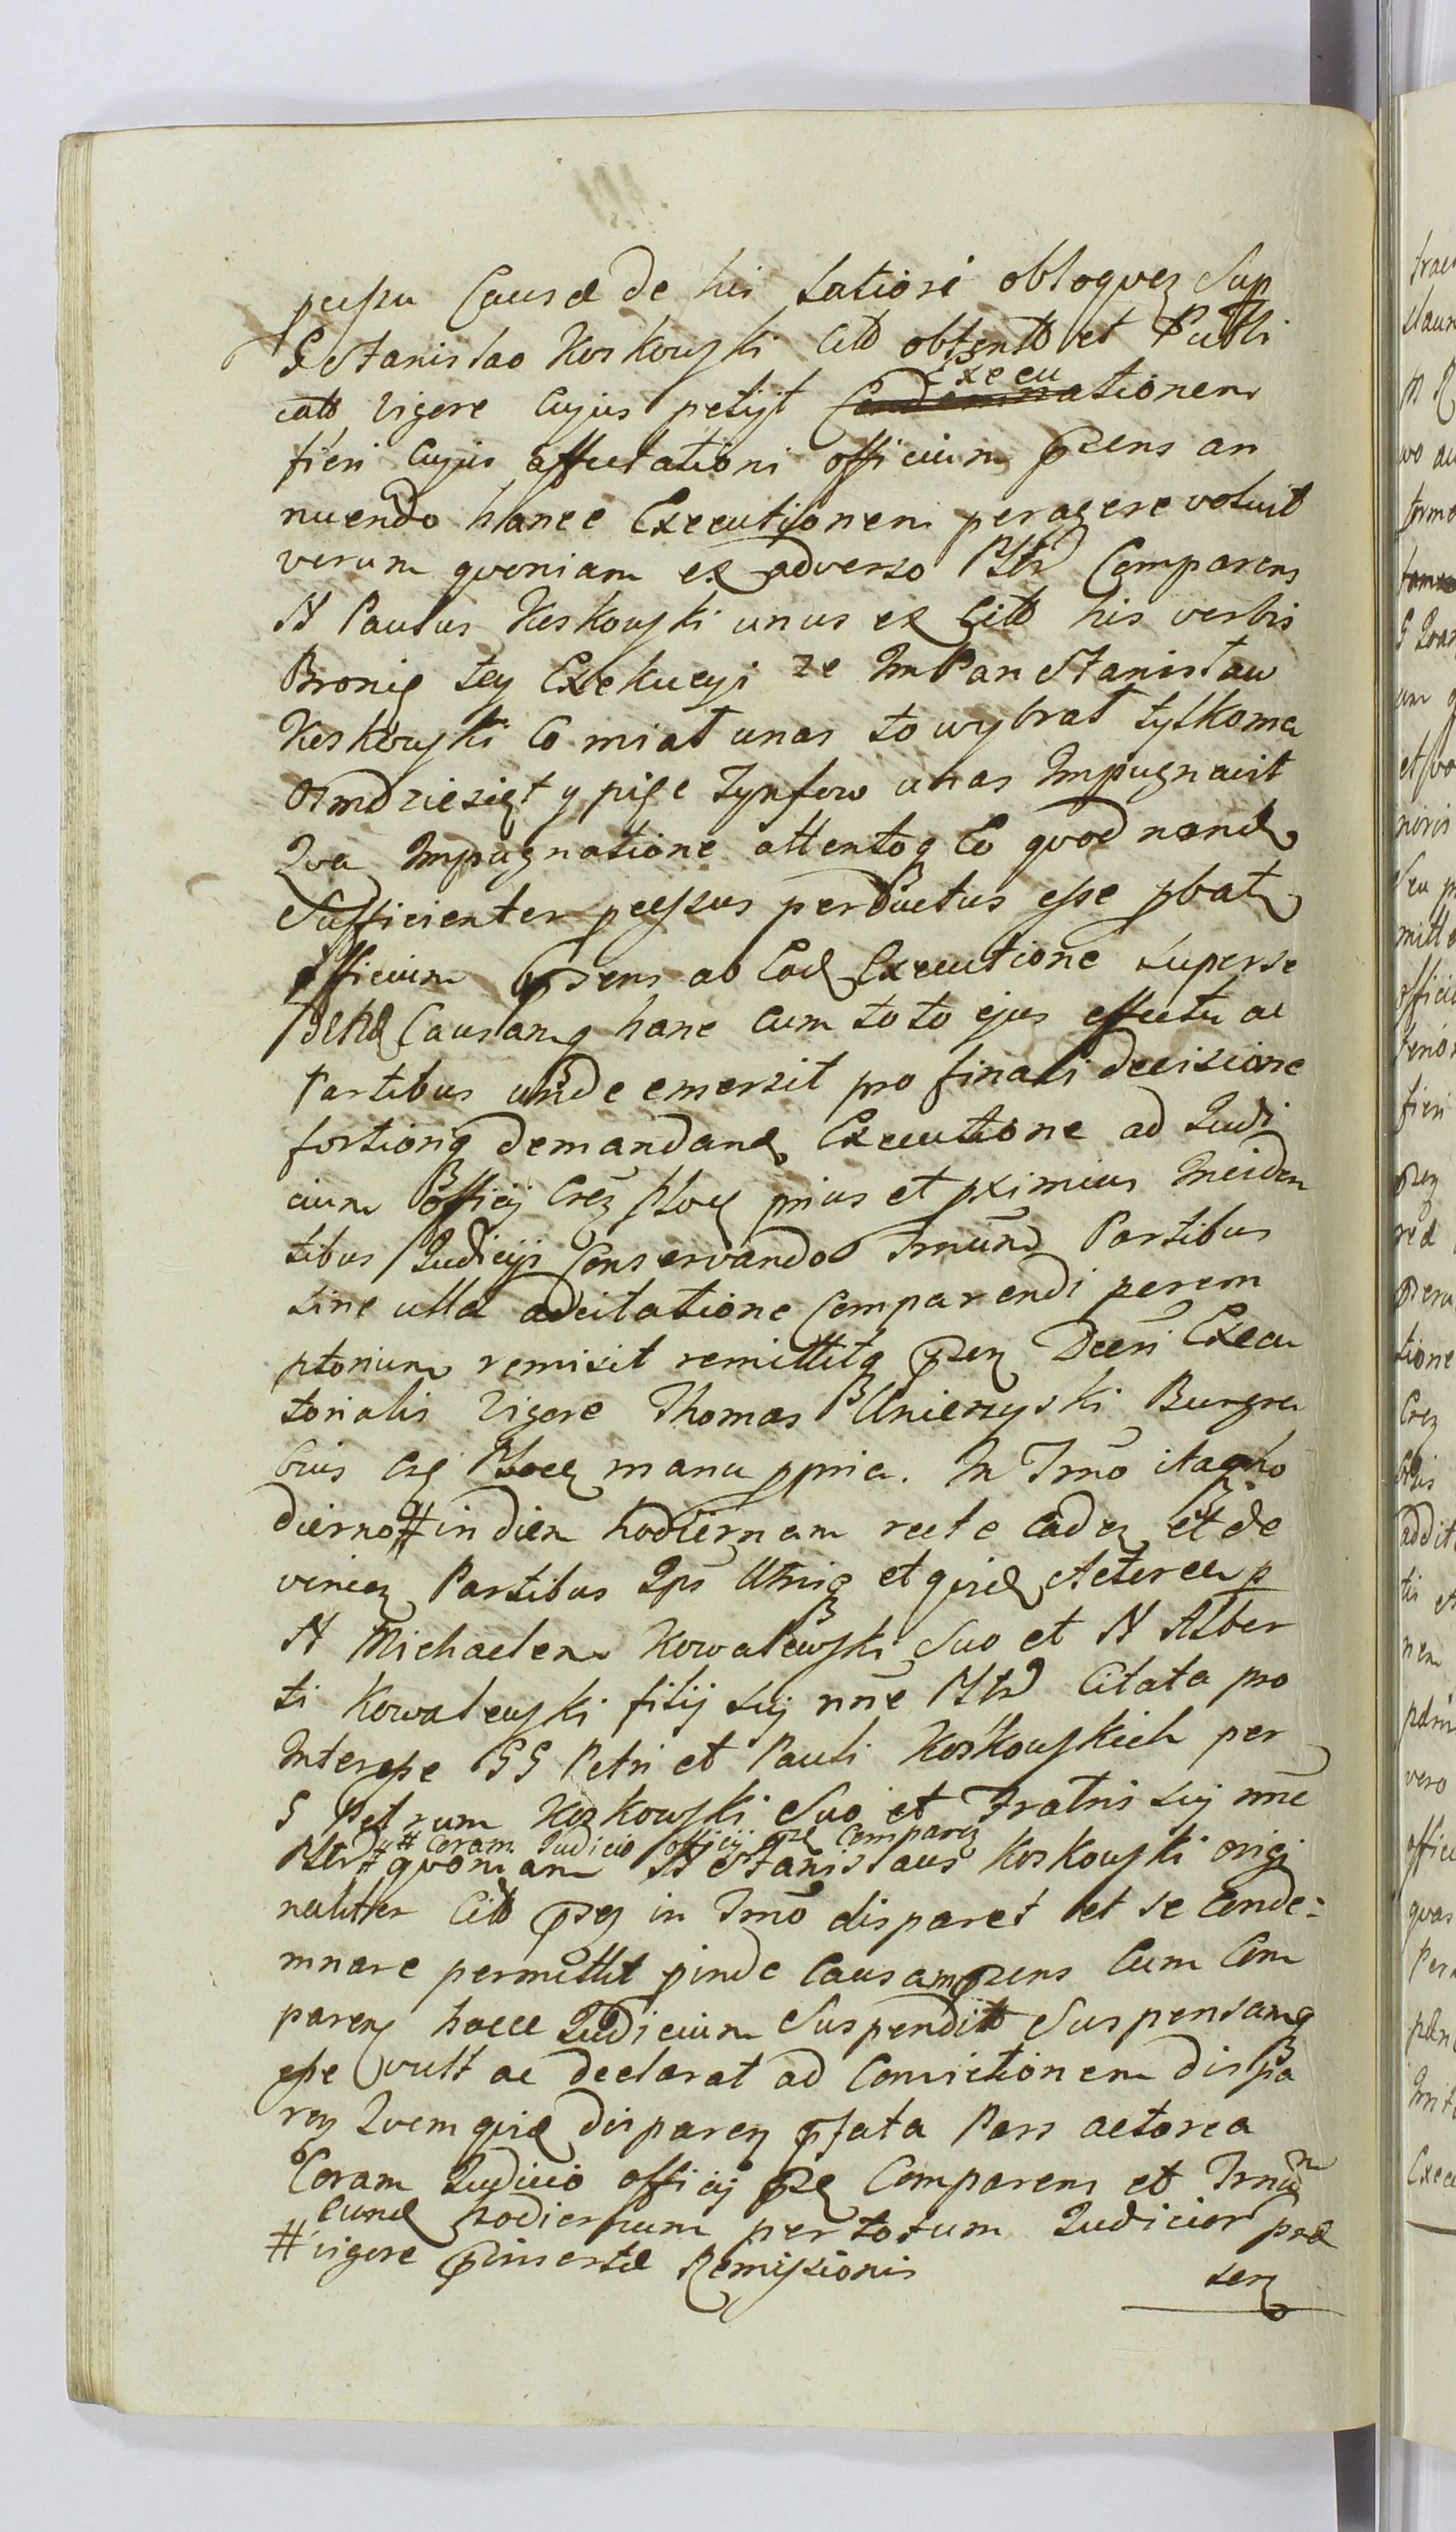 pcessu Causa de his latiori obloquen Sup
G Stanislao Koskowski Citto obtento et Publi
cato vigore Cujus petijt Execuationem
fieri Cujus affectationi officium pzens an
nuendo hance Executionem peragere voluit
verum quoniam ex adverso Pltr Comparens
N Paulus Koskowski unus ex Citt his verbis
Bronię tey Exekucyi ze Im Pan Stanisław
Koskowski Co miał unas to wybrał tylkoma
osmdziesiąt y pięc Tynfow unas Impugnavit
Qva Impugnatione attentoq Eo quod nond
Sufficienter pcessus perductus esse pbat
officium pzens ab Ead Executione superse
dett Causamq hanc cum toto ejus effectu ac
Partibus unde emersit pro finali decisione
fortioriq demandand Executione ad Judi
cium officij Cren Ploc prius et pximius Inciden
tibus Judicijs Conservando Trmum Partibus
sine ulla adcitatione Comparendi perem
ptorium remisit remittitq pzen Decri Execu
torialis vigore Thomas Unierzyski Burgra
bius Crs Plocen manu ppria. In Trmo itaq ho
dierno # in diem hodiernam recte caden et de
venien Partibus Ips Utriq et quid Actorea p
N Michaelem Kowalewski Suo et N Alber
ti Kowalewski filij sui nne Pltr Citata pro
Interesse GG Petri et Pauli Koskowskich per
G Petrum Koskowski Suo et Fratris sui nne
# Coram Judicio officij pze Comparen
Pltr # quoniam N Stanislaus Koskowski origi
naliter Citt pzen in Trmo disparet et se conde=
mnare permittit pinde Causam pzens Cum Com
paren hocce Judicium Suspendit Suspensamq
esse vult ac declarat ad Convictionem dispa
ren Quem quid disparen pfata Pars actorea
Coram Judicio officij pze Comparens et Trmum
eund hodiernum per totum Judicior prae
# vigore pinserta Remissionis
sen